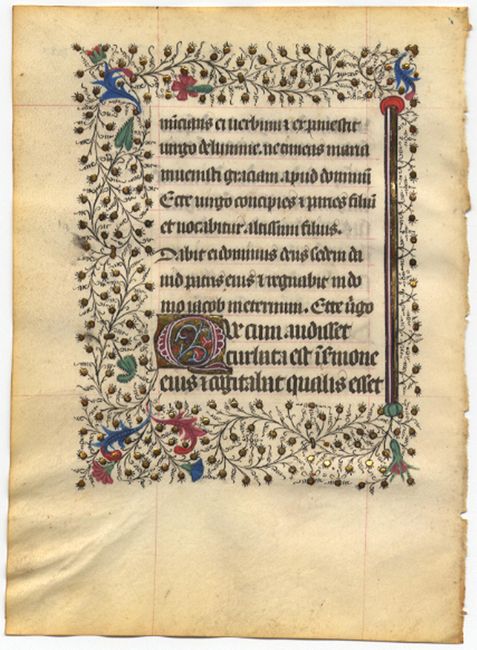 nūcians ei verbum & expauescit
uirgo de lumine. ne timeas maria
inuenisti graciam apud dominū
Ecce uirgo concipies & paries filiū
et uocabitur altissimi filius.
Dabit ei dominus deus sedem da
uid patris eius & regnabit in do
mo iacob in eternum. Ecce ūgo
Que cum audisset
turbata est ī s̄mone
eius & cogitabat qualis esset